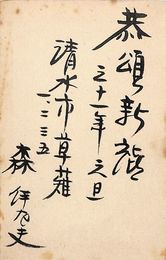 恭頌新禧
之十一年元旦
清水市草薙
一、二三五
森 伊乃夫